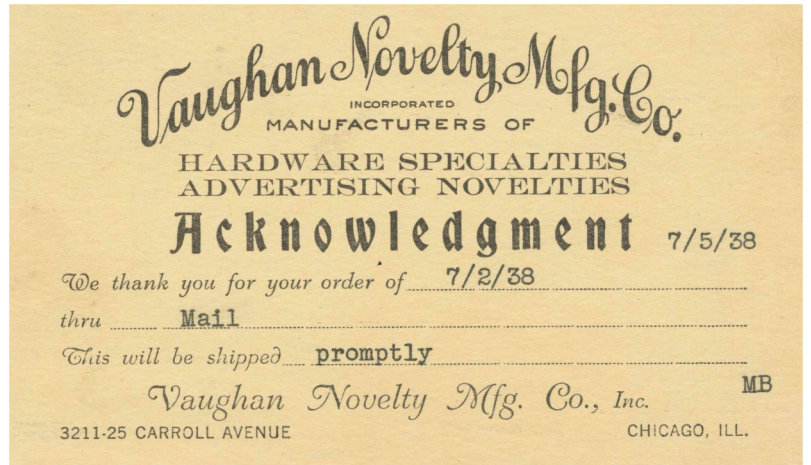 Vaughan Novelty Mfg. Co.
INCORPORATED
MANUFACTURERS OF
HARDWARE SPECIALTIES
ADVERTISING NOVELTIES
Acknowledgment 7/5/38
We thank you for your order of 7/2/38
thru Mail
This will be shipped promptly
MB
Vaughan Novelty Mfg. Co., Inc.
3211-25 CARROLL AVENUE CHICAGO, ILL.